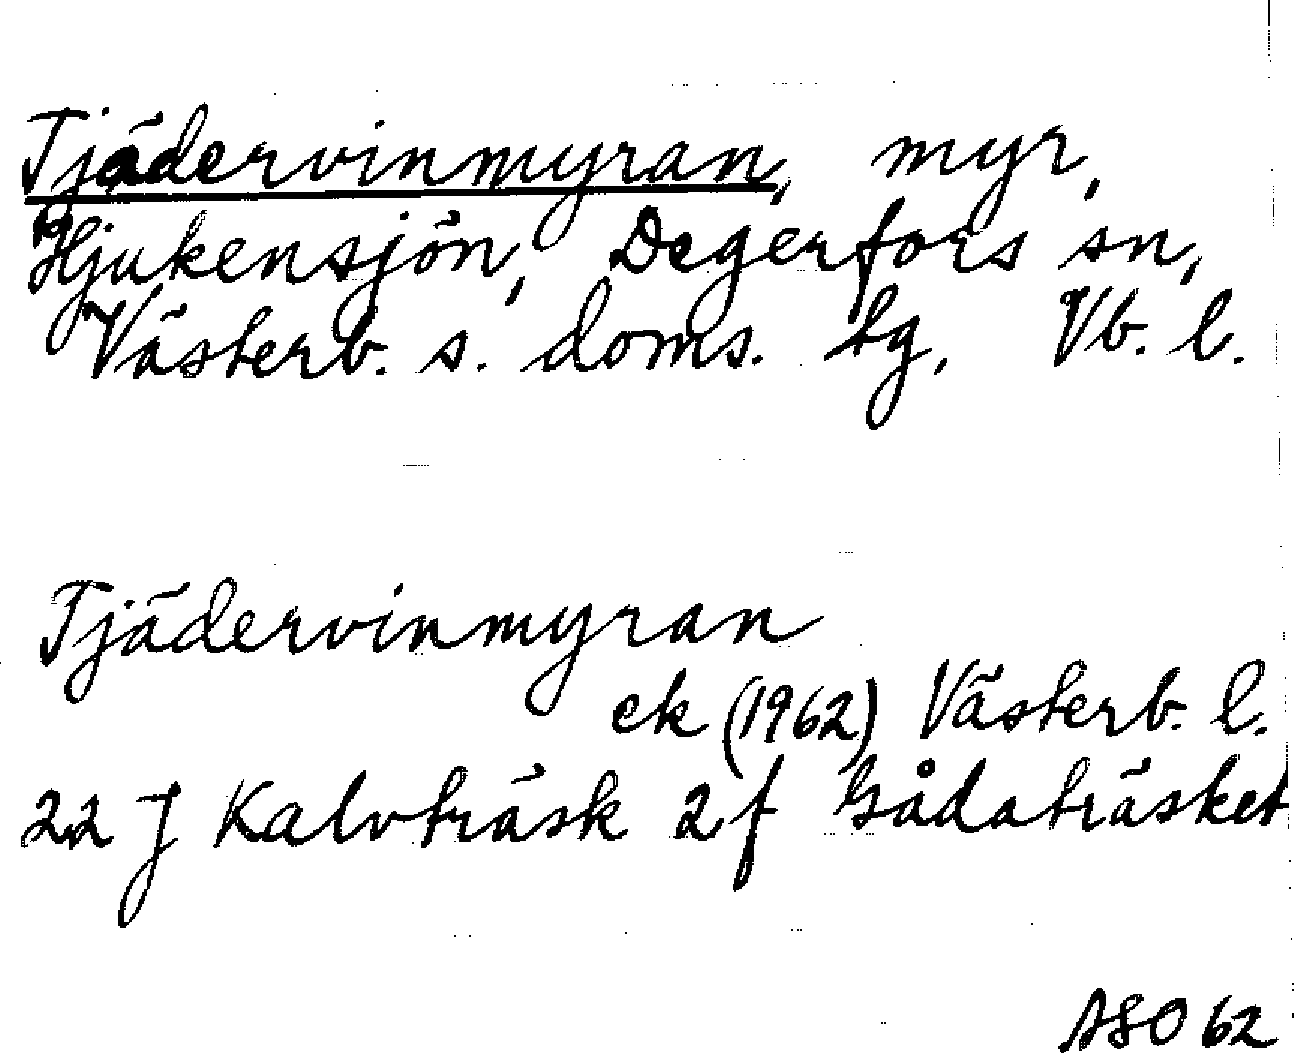 Tjädervinmyran, myr,
Hjukensjön, Degerfors sn,
Västerb. s. doms. tg, Vb. l.
Tjädervinmyran
ek (1962) Västerb. l.
22 J Kalvträsk 2 f Gådaträsket
ASO 62